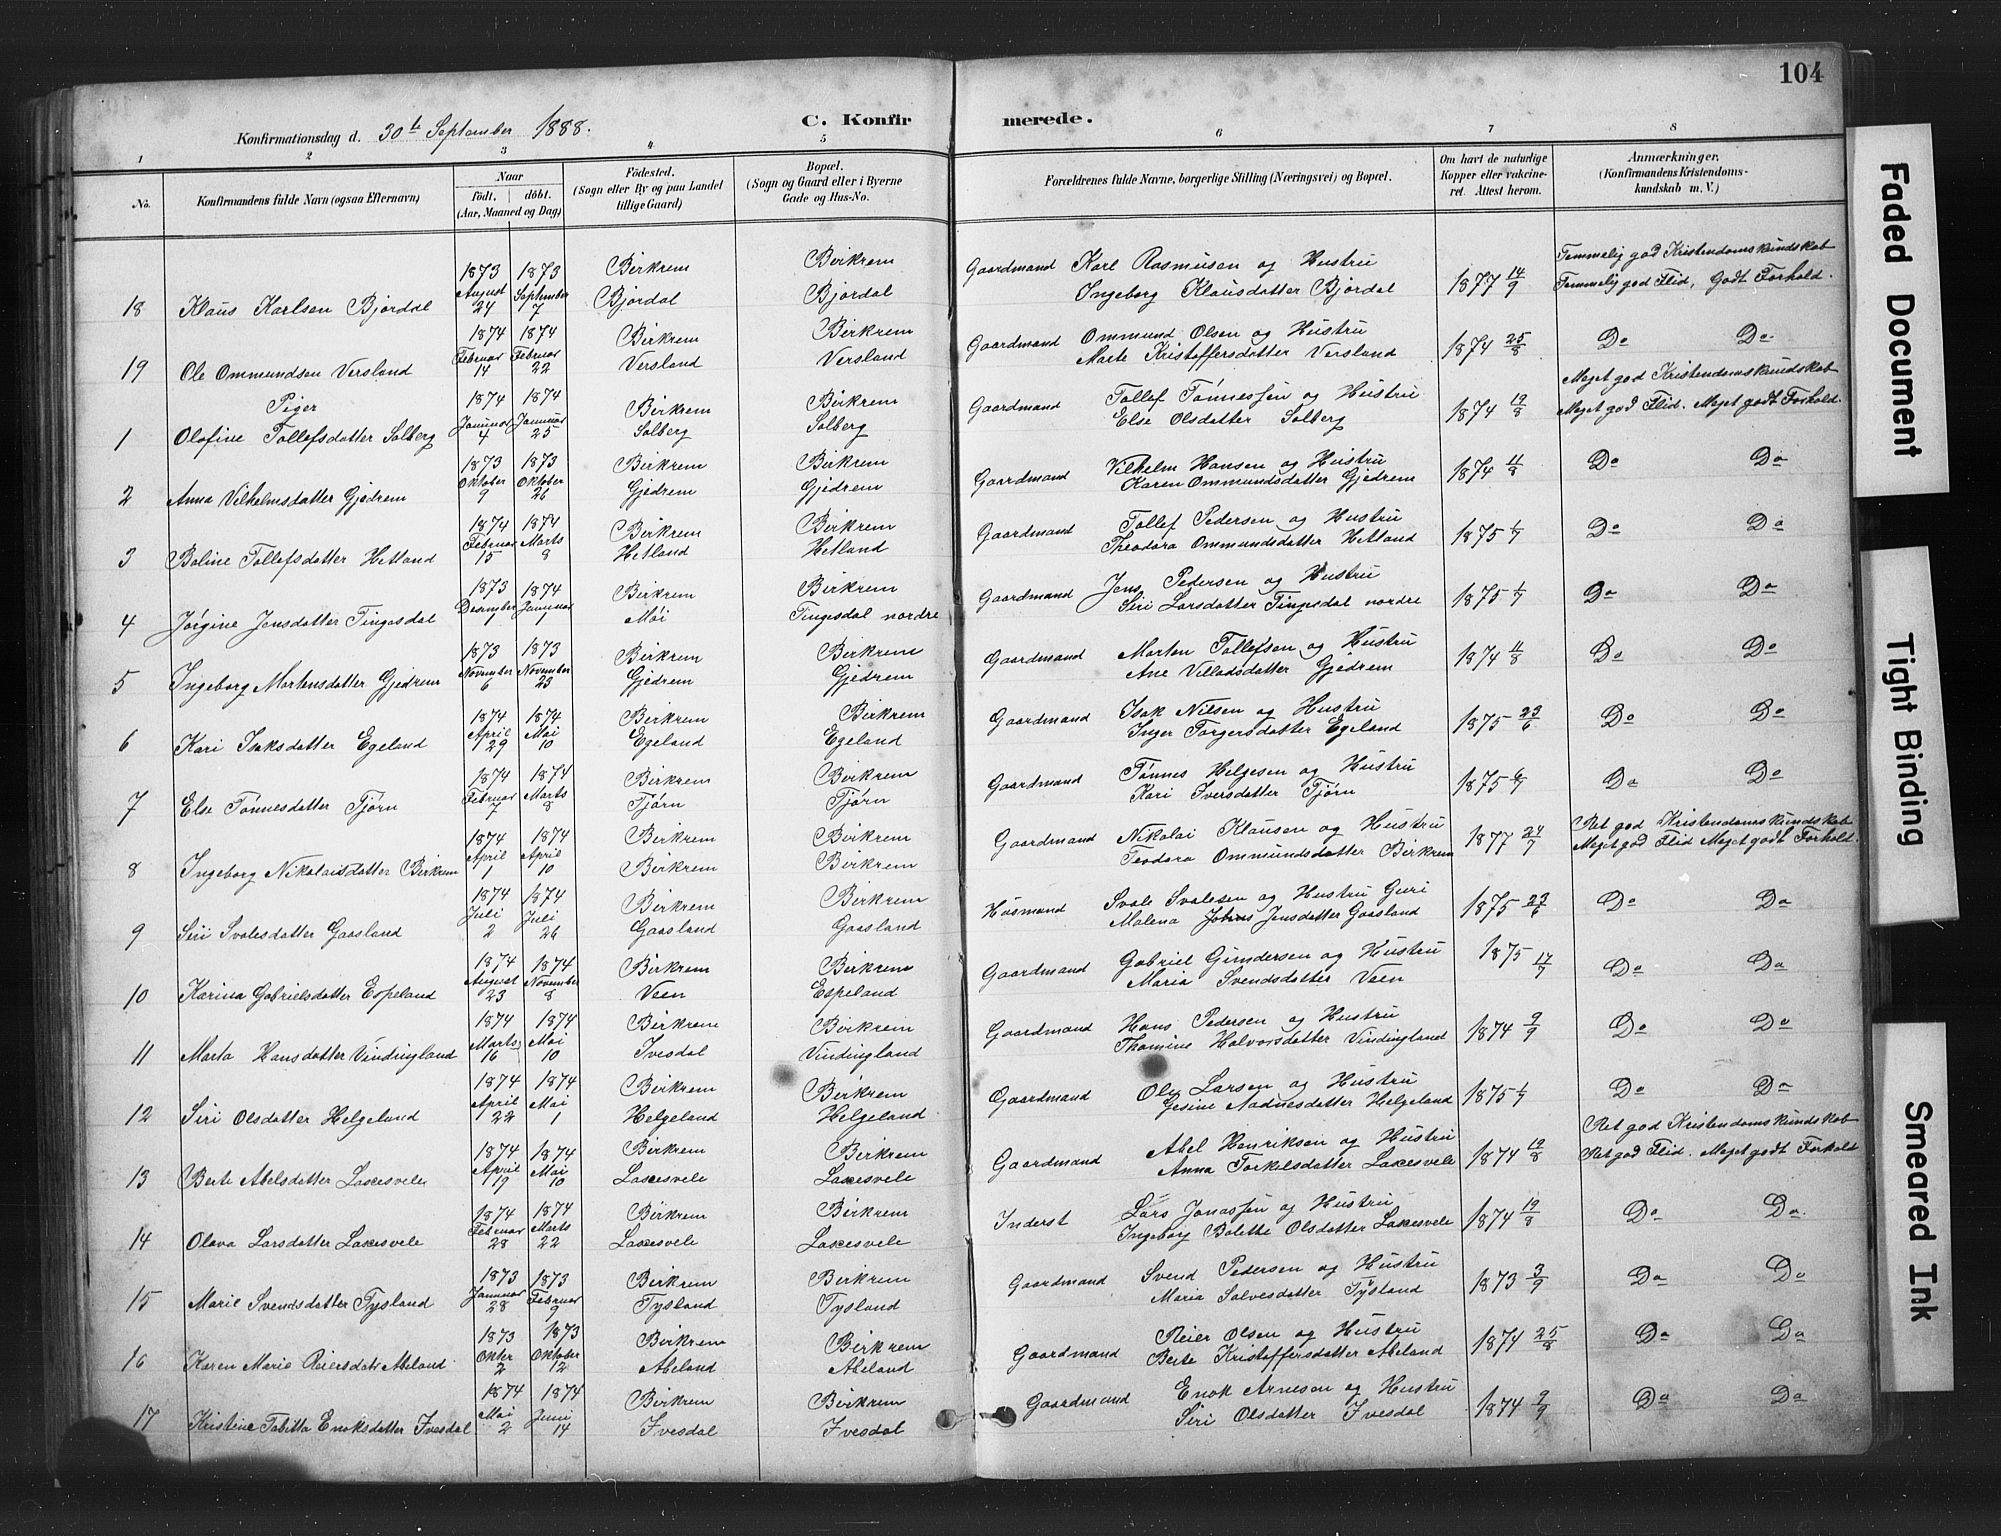 104
Konfirmationsdag d. 30te September 1888.
C. Konfirmerede.
1 2 3 4 5 6 7 8
No. Konfirmandens fulde Navn (ogsaa Efternavn) Naar født, døbt. (Aar, Maaned og Dag) Fødested. (Sogn eller By og paa Landet tillige Gaard) Bopæl. (Sogn og Gaard eller i Byerne Gade og Hus-No. Forældrenes fulde Navne, borgerlige Stilling (Næringsvei) og Bopæl. Om havt de naturlige Kopper eller vakcineret. Attest herom. Anmærkninger. (Konfirmandens Kristendomskundskab m. V.)
18 Klaus Karlsen Bjordal 1873 August 24 1873 September 7 Birkrem Bjordal Birkrem Bjordal Gaardmand Karl Rasmusen og Hustru Ingeborg Klausdatter Bjordal 1877 14/9 Temmelig god Kristendomskundskab Temmelig god Flid, Godt Forhold.
19 Ole Ommundsen Versland 1874 Februar 14 1874 Februar 22 Birkrem Versland Birkrem Versland Gaardmand Ommund Olsen og Hustru Marte Kristoffersdatter Versland 1874 25/8 Do Do
Piger
1 Olofine Tollefsdatter Solberg 1874 Januar 4 1874 Januar 25 Birkrem Solberg Birkrem Solberg Gaardmand Tollef Tønnessen og Hustru Else Olsdatter Solberg 1874 19/8 Meget god Kristendomskundskab Meget god Flid. Meget godt Forhold.
2 Anna Vilhelmsdatter Gjedrem 1873 Oktober 9 1873 Oktober 26 Birkrem Gjedrem Birkrem Gjedrem Gaardmand Vilhelm Hansen og Hustru Karen Ommundsdatter Gjedrem 1874 11/8 Do Do
3 Boline Tollefsdatter Hetland 1874 Februar 15 1874 Marts 8 Birkrem Hetland Birkrem Hetland Gaardmand Tollef Pedersen og Hustru Theodora Ommundsdatter Hetland 1875 1/7 Do Do
4 Jørgine Jensdatter Tingesdal 1873 Desember 1 1874 Januar 1 Birkrem Møi Birkrem Tingesdal nordre Gaardmand Jens Pedersen og Hustru Siri Larsdatter Tingesdal nordre 1875 1/7 Do Do
5 Ingeborg Martensdatter Gjedrem 1873 November 6 1873 November 23 Birkrem Gjedrem Birkrem Gjedrem Gaardmand Morten Tollefsen og Hustru Ane Villadsdatter Gjedrem 1874 11/8 Do Do
6 Kari Isaksdatter Egeland 1874 April 29 1874 Mai 10 Birkrem Egeland Birkrem Egeland Gaardmand Isak Nilsen og Hustru Inger Torgersdatter Egeland 1875 23/6 Do Do
7 Else Tønnesdatter Tjørn 1874 Februar 7 1874 Marts 8 Birkrem Tjørn Birkrem Tjørn Gaardmand Tønnes Helgesen og Hustru Kari Iversdatter Tjørn 1875 6/7 Do Do
8 Ingeborg Nikolaisdatter Birkrem 1874 April 1 1874 April 10 Birkrem Birkrem Birkrem Birkrem Gaardmand Nikolai Klausen og Hustru Teodora Ommundsdatter Birkrem 1877 24/7 Ret god Kristendomskundskab Meget god Flid Meget godt Forhold.
9 Siri Svalesdatter Gaasland 1874 Juli 2 1874 Juli 26 Birkrem Gaasland Birkrem Gaasland Husmand Svale Svalesen og Hustru Guri Malena Jensdatter Gaasland 1875 23/6 Do Do
10 Karina Gabrielsdatter Espeland 1874 August 23 1874 November 8 Birkrem Veen Birkrem Espeland Gaardmand Gabriel Gundersen og Hustru Maria Svendsdatter Veen 1875 17/7 Do Do
11 Marta Hansdatter Vindingland 1874 Marts 16 1874 Mai 10 Birkrem Ivesdal Birkrem Vindingland Gaardmand Hans Pedersen og Hustru Thomine Halvorsdatter Vindingland 1874 9/9 Do Do
12 Siri Olsdatter Helgeland 1874 April 22 1874 Mai 1 Birkrem Helgeland Birkrem Helgeland Gaardmand Ole Larsen og Hustru Gesine Aadnesdatter Helgeland 1875 1/7 Do Do
13 Berte Abelsdatter Laxesvele 1874 April 19 1874 Mai 10 Birkrem Laxesvele Birkrem Laxesvele Gaardmand Abel Henriksen og Hustru Anna Torkelsdatter Laxesvele 1874 19/8 Ret god Kristendomskundskab Ret god Flid. Meget godt Forhold
14 Olava Larsdatter Laxesvele 1874 Februar 28 1874 Marts 22 Birkrem Laxesvele Birkrem Laxesvele Inderst Lars Jonassen og Hustru Ingeborg Bolette Olsdatter Laxesvele 1874 19/8 Do Do
15 Marie Svendsdatter Tysland 1873 Januar 28 1873 Februar 9 Birkrem Tysland Birkrem Tysland Gaardmand Svend Pedersen og Hustru Maria Salvesdatter Tysland 1873 3/9 Do Do
16 Karen Marie Reiersdatr Abeland 1873 Oktbr 2 1873 Oktober 12 Birkrem Abeland Birkrem Abeland Gaardmand Reier Olsen og Hustru Berte Kristoffersdatter Abeland 1874 25/8 Do Do
17 Kristine Tabitta Enoksdatter Ivesdal 1874 Mai 2 1874 Juni 14 Birkrem Ivesdal Birkrem Ivesdal Gaardmand Enok Arnesen og Hustru Siri Olsdatter Ivesdal 1874 9/9 Do Do
Faded Document
Tight Binding
Smeared Ink